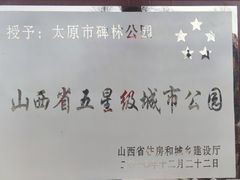 授予：太原市碑林公园
山西省五星级城市公园
山西省住房和城乡建设厅
年十二月二十二日